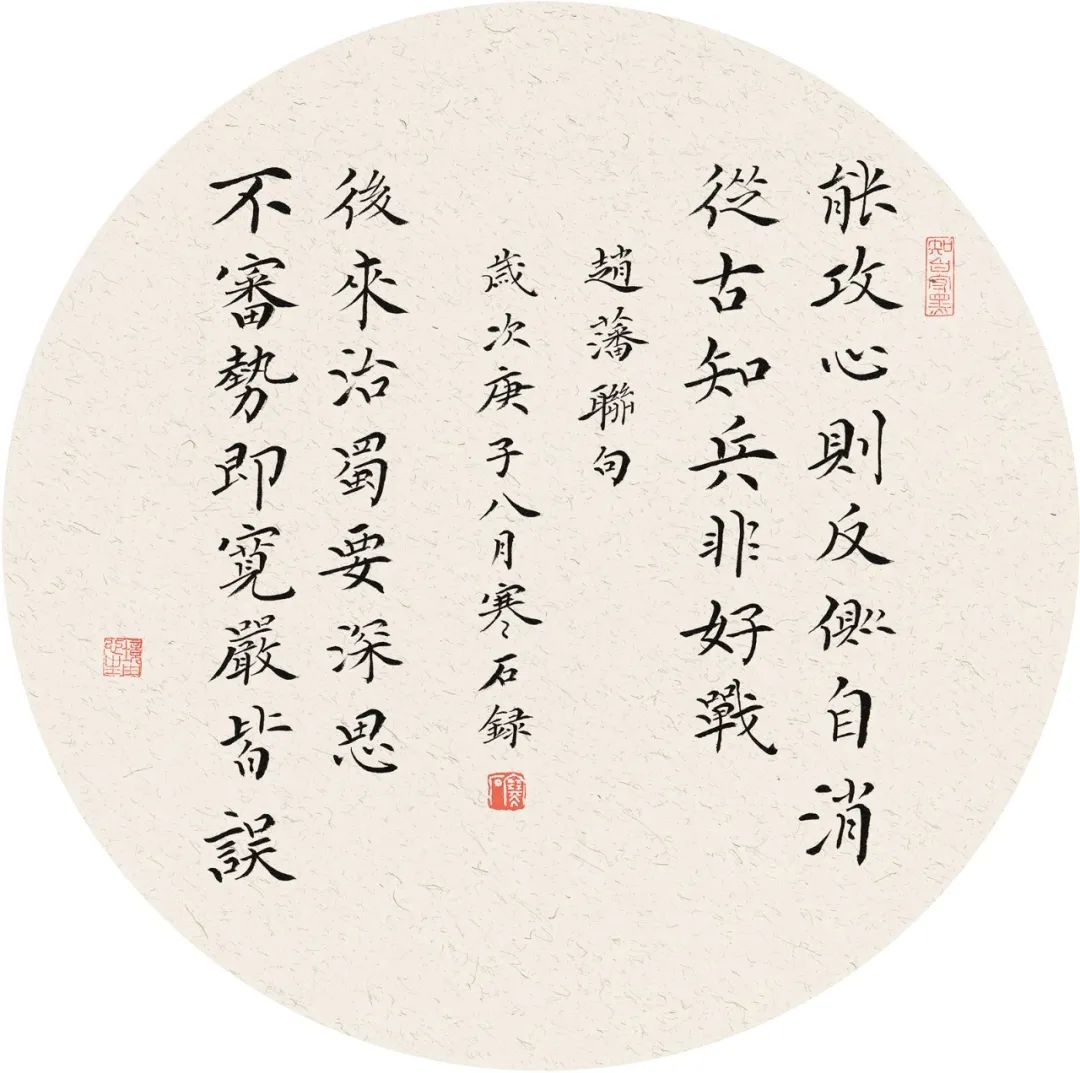 知白守黑
能攻心則反側自消
從古知兵非好戰
趙藩聯句
歲次庚子八月寒石録
寒石
後來治蜀要深思
不審勢即寬嚴皆誤
境由心生